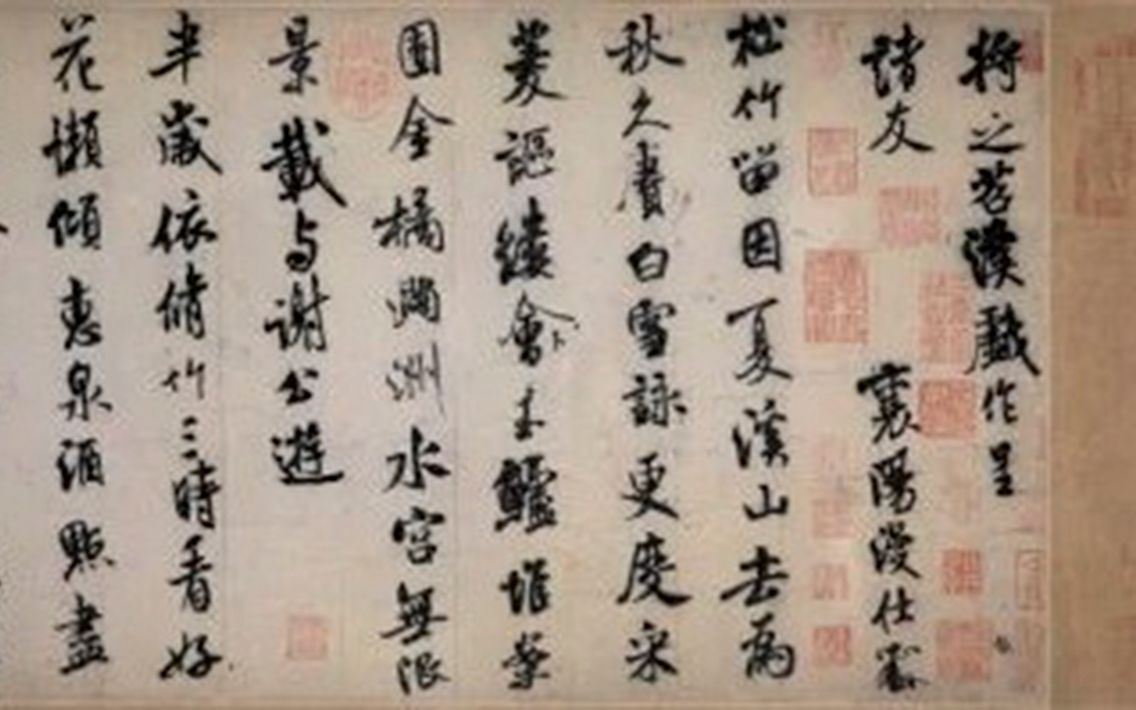 將之苕溪戲作呈
諸友 襄陽漫仕黻
松竹留因夏溪山去為
秋久賡白雪詠更度采
菱謳縷會玉鱸堆案
團金橘滿洲水宮無限
景載与謝公遊
半歲依脩竹三時看好
花懶傾惠泉酒點盡